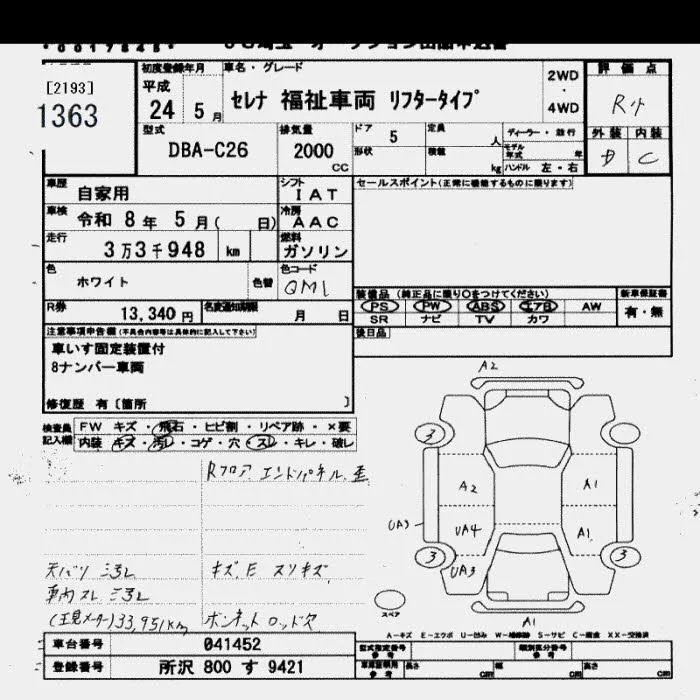 [2193]
1363
初度登録年月
平成
24 5 月
車名・グレード
セレナ 福祉車両 リフタータイプ
2WD
・
4WD
評価点
R
外装 内装
D C
型式
DBA-C26
排気量
2000
CC
ドア 5
形状
定員
人
積載
kg
モデル年式 年
ハンドル 左・右
車歴
自家用
シフト
I A T
セールスポイント(正常に機能するものに限ります)
車検
令和 8 年 5 月( 日)
冷房
A A C
走行
3 万 3 千 948 km
燃料
ガソリン
色
ホワイト
色替
色コード
QM1
装備品 (純正品に限り○をつけてください)
PS PW ABS エアB AW
SR ナビ TV カワ
新車保証書
有・無
R券
13,340 円
名変通知期限
月 日
後日品
注意事項申告欄(不具合内容等は具体的に記入して下さい)
車いす固定装置付
8ナンバー車両
修復歴 有〔箇所 〕
検査員
記入欄
FW キズ・飛石・ヒビ割・リペア跡・×要
内装 キズ・汚レ・コゲ・穴・スレ・キレ・破レ
Rフロア エンドパネル
キズ、E スリキズ
車内スレ
33,951km
ボンネットロッド欠
A2
3
A2 A1
UA3
UA4 A1
3 UA3 3
スペア
A1
A-キズ E-エクボ U-凹み W-補修跡 S-サビ C-腐食 XX-交換済
車台番号 041452
登録番号 所沢 800 す 9421
型式指定番号
参考
類別区分番号
参考
長さ cm 幅 cm 高さ cm